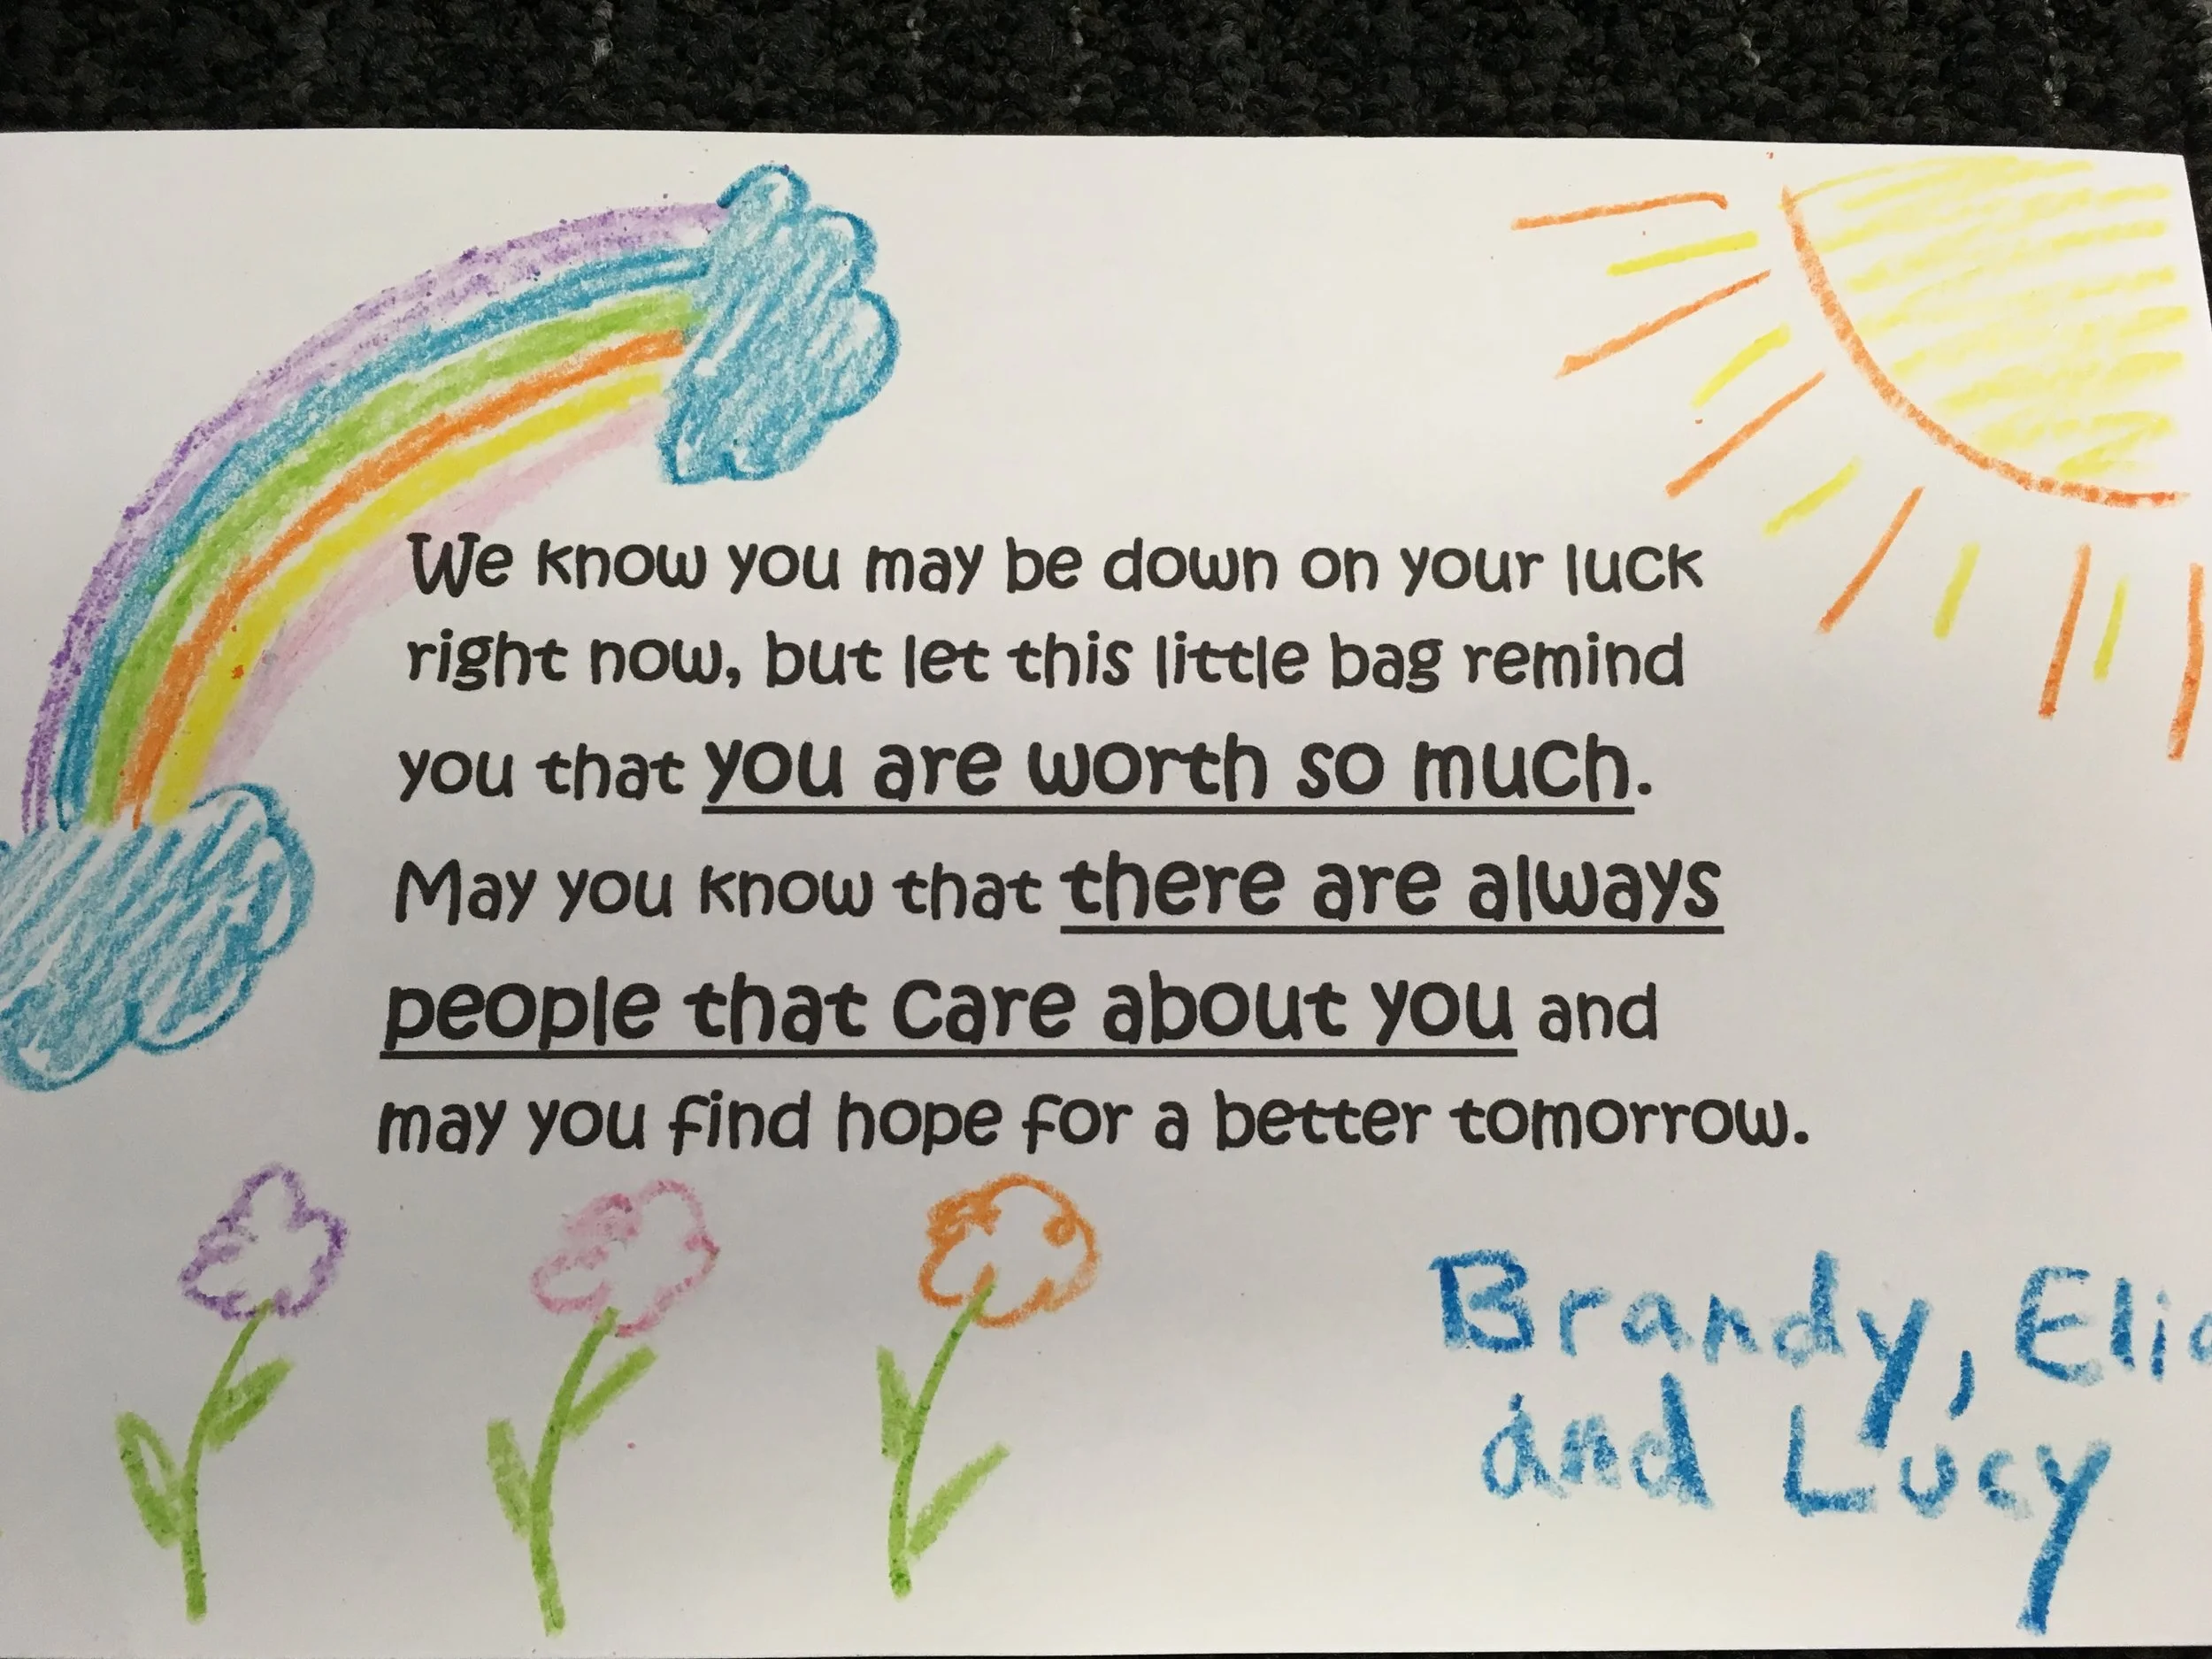 We know you may be down on your luck
right now, but let this little bag remind
you that you are worth so much.
May you know that there are always
people that care about you and
may you find hope for a better tomorrow.
Brandy,
and Lucy